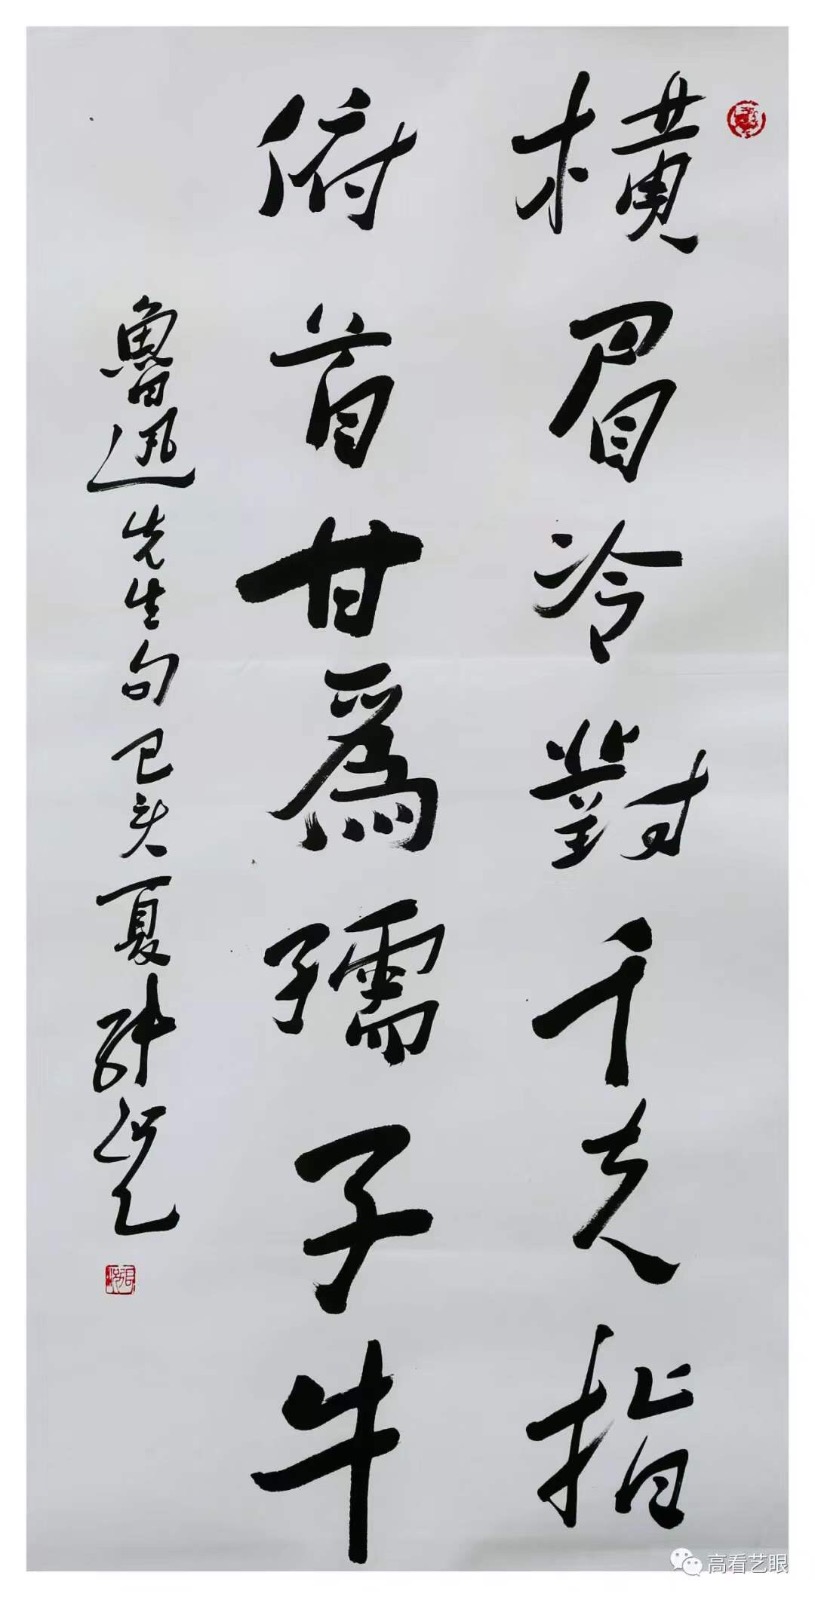 橫眉冷對千夫指
俯首甘為孺子牛
魯迅先生句己亥夏張
高看艺眼